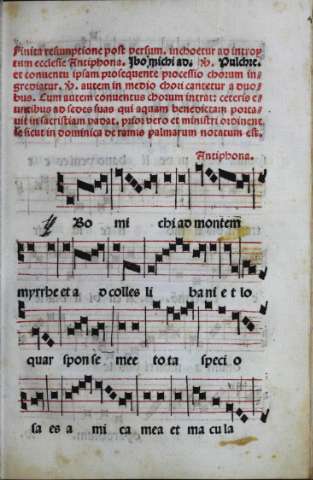 Finita resumptione post versum. inchoetur ad introy
tum ecclesie Antiphona. Ibo michi ad. V. Pulchre.
et conventu ipsam prosequente processio chorum in-
grediatur. V. autem in medio chori cantetur a duo-
bus. Cum autem conventus chorum intrat: ceteris e-
untibus ad sedes suas qui aquam benedictam porta-
vit in sacristiam vadat. prior vero et ministri ordinent
se sicut in dominica de ramis palmarum notatum est.
Antiphona.
Ibo mi chi ad montem
myrrhe et a d colles li bani e t lo
quar spon se mee to ta speci o
sa es a mi ca mea et ma cu la